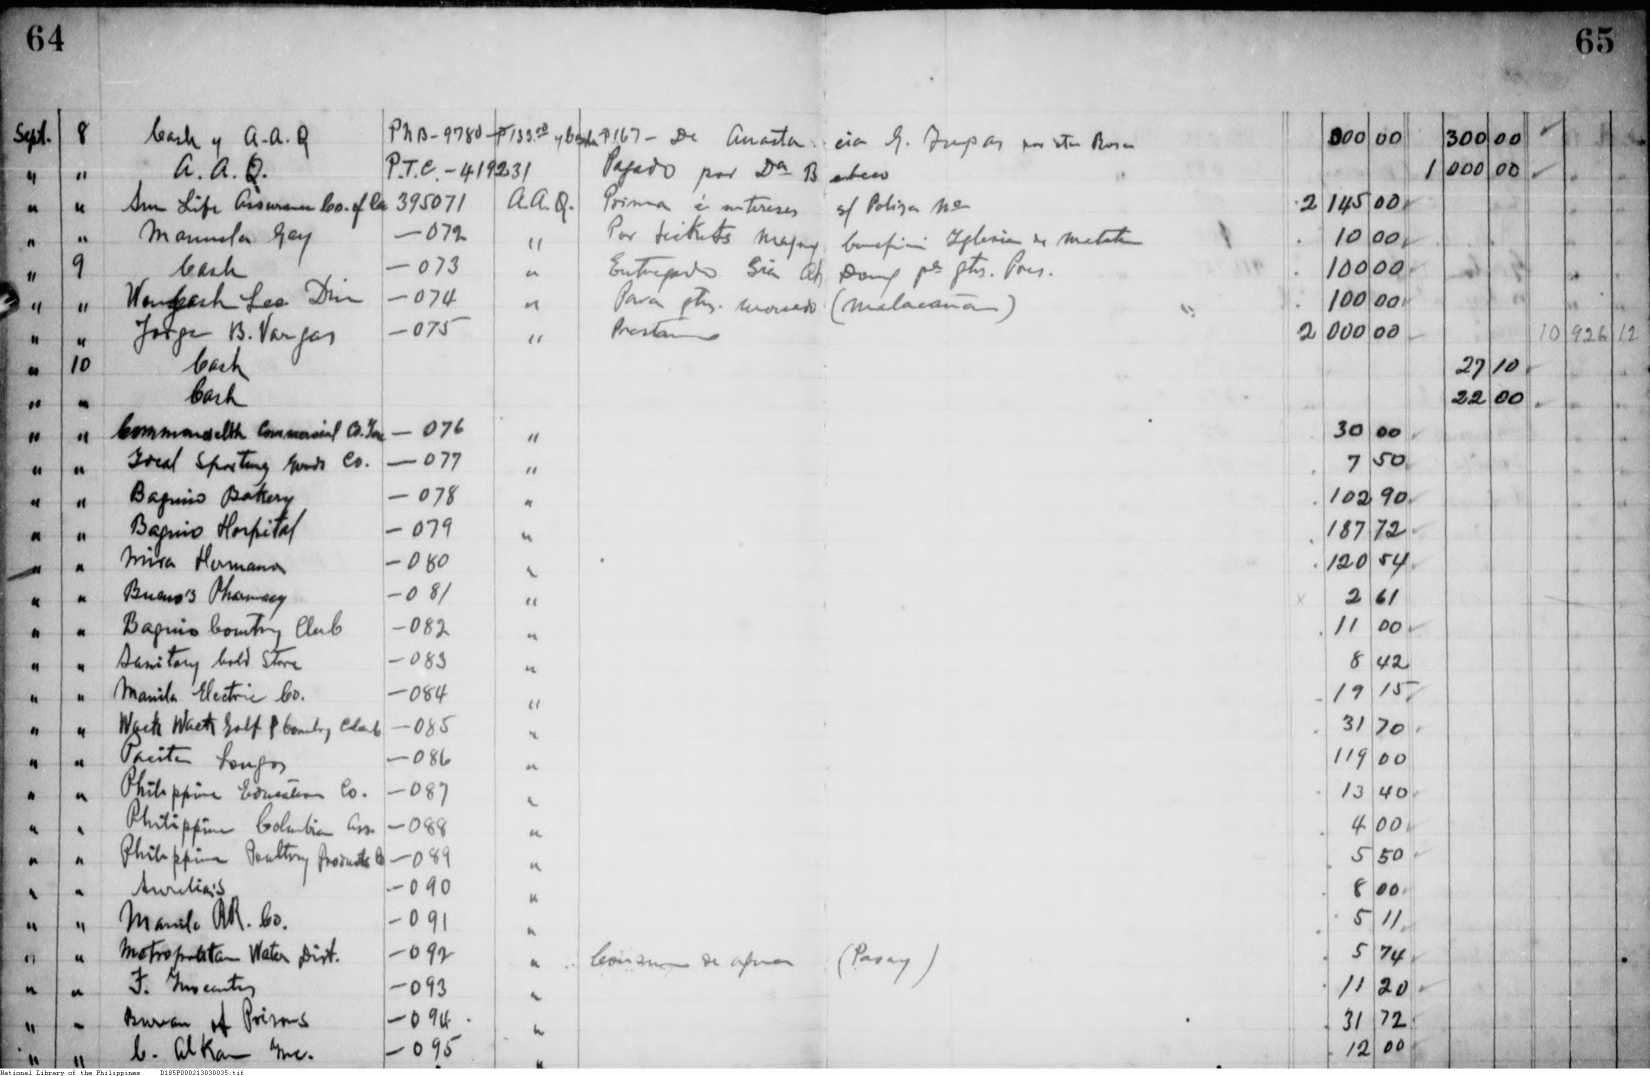 64 65
Sept. 8 Cash y A.A.Q PNB-9780-₱133.00 y Cash ₱167- De Anasta cia G. por Sta Rosa 300 00 300 00
" " A. A. Q. P.T.C.-419231 Pagado por Da B 1 000 00
" " Sun Life Assurance Co. of Ca 395071 A.A.Q. Prima é intereses s/ Poliza No 2 145 00
" " Manuela Gay -072 " Por tickets benefin Iglesia de 10 00
" 9 Cash -073 " Entregado Sra pa gtos. Pres. 100 00
" " Lee Din -074 " Para gtos. mercado (Malacañan) " 100 00
" " Jorge B. Vargas -075 " Prestamo 2 000 00 10 926 12
" 10 Cash 27 10
" " Cash 22 00
" " Commonwealth Commercial Co. Inc -076 " 30 00
" " Ideal Sporting Goods Co. -077 " 7 50
" " Baguio Bakery -078 " 102 90
" " Baguio Hospital -079 " 187 72
" " Mira Hermanos -080 " 120 54
" " Bueno's Pharmacy -081 " 2 61
" " Baguio Country Club -082 " 11 00
" " Sanitary Cold Store -083 " 8 42
" " Manila Electric Co. -084 " 19 15
" " Wack Wack Golf & Country Club -085 " 31 70
" " Pacita Longos -086 " 119 00
" " Philippine Education Co. -087 " 13 40
" " Philippine Columbian Ass. -088 " 4 00
" " Philippine Poultry Products Co -089 " 5 50
" " Aurelia's -090 " 8 00
" " Manila RR. Co. -091 " 5 11
" " Metropolitan Water Dist. -092 " Consumo de agua (Pasay) 5 74
" " F. -093 " 11 20
" " Bureau of Prisons -094 " 31 72
" " C. Alkan Inc. -095 " 12 00
National Library of the Philippines D185P000213030035.tif